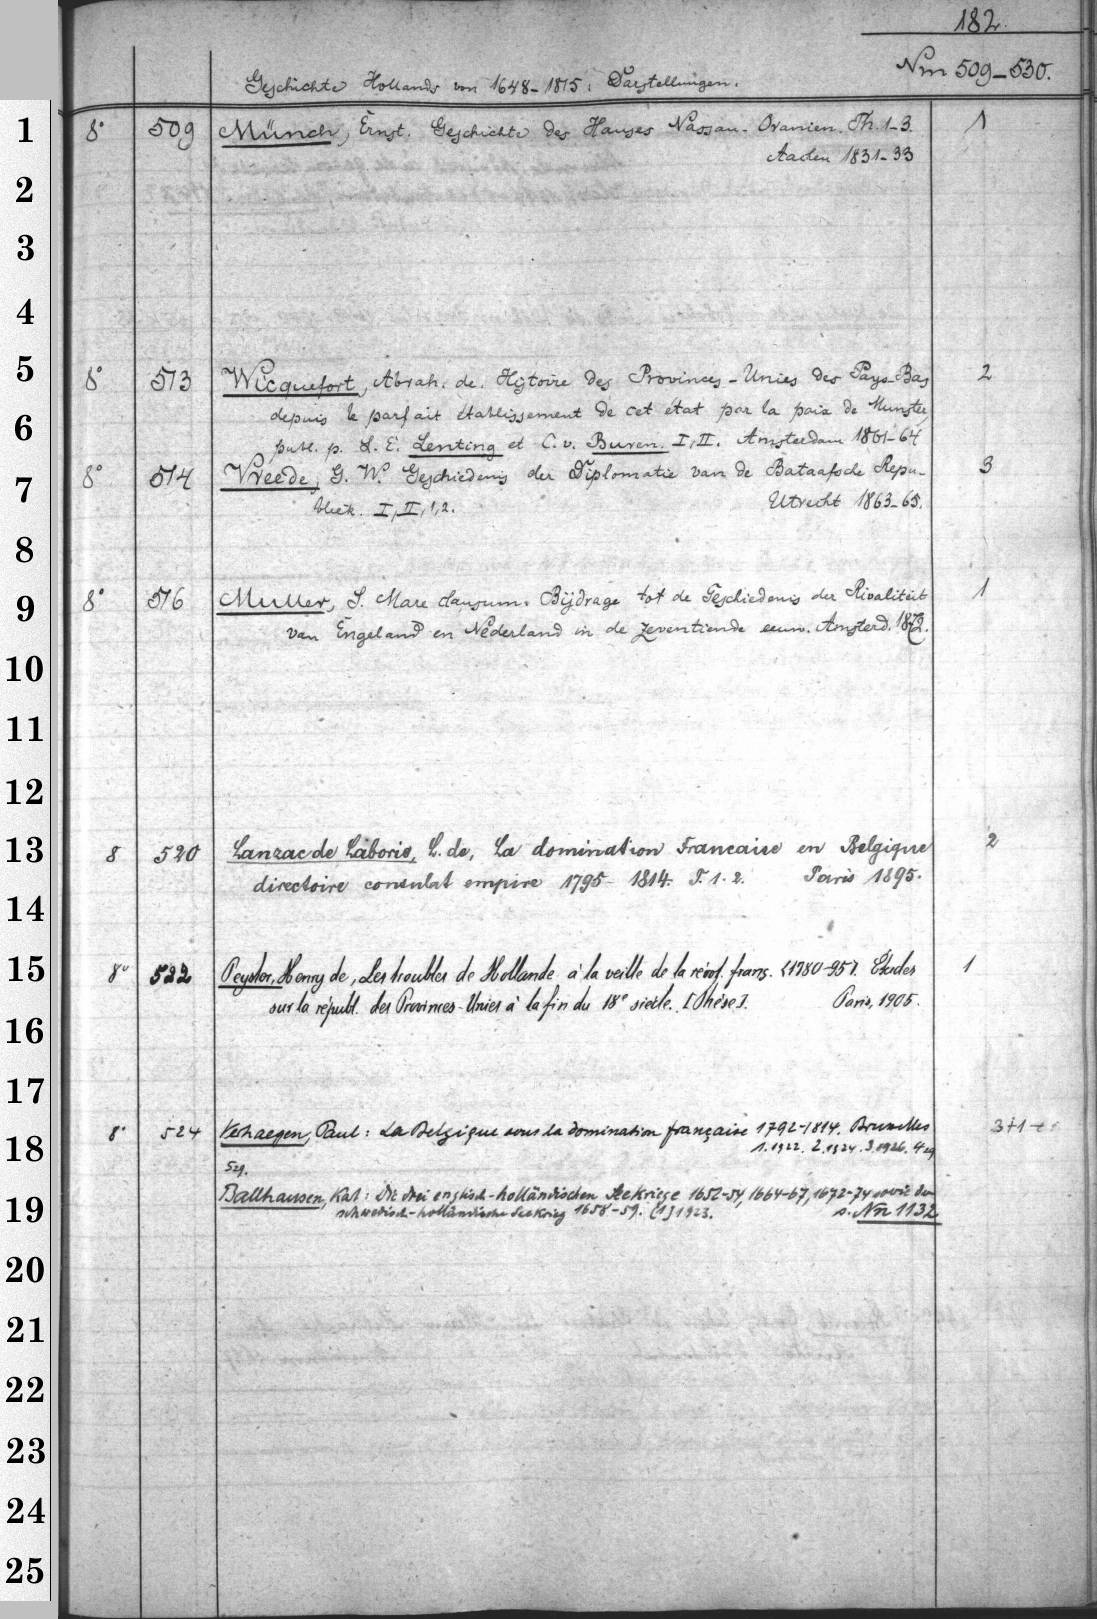 182.
Nrn 509-530.
Geschichte Hollands von 1648-1815: Darstellungen.
1 8° 509 Münch, Ernst. Geschichte des Hauses Nassau-Oranien. Th. 1-3. 1
Aachen 1831-33
2
3
4
5 8° 513 Wicquefort, Abrah. de. Histoire des Provinces-Unies des Pays-Bas 2
depuis le parfait établissement de cet état par la paix de Munster,
6 publ. p. L. E. Lenting et C. v. Buren. I, II. Amsterdam 1861-64
7 8° 514 Vreede, G. W. Geschiedenis der Diplomatie van de Bataafsche Repu- 3
bliek. I, II, 1, 2. Utrecht 1863-65.
8
9 8° 516 Muller, S. Mare clausum. Bijdrage tot de Geschiedenis der Rivaliteit 1
van Engeland en Nederland in de zeventiende eeuw. Amsterd. 1872.
10
11
12
13 8 520 Lanzac de Laborie, L. de, La domination Francaise en Belgique 2
directoire consulat empire 1795-1814. T. 1. 2. Paris 1895.
14
15 8° 522 Peyster, Henry de, Les troubles de Hollande à la veille de la révol. franç. (1780-95). Études 1
sur la républ. des Provinces-Unies à la fin du 18e siècle. [Thèse]. Paris, 1905.
16
17
18 8° 524 Verhaegen, Paul: La Belgique sous la domination française 1792-1814. Bruxelles 3+1
1.1922. 2.1924. 3.1926. 4.29
19 Ballhausen, Karl: Die drei englisch-holländischen Seekriege 1652-54, 1664-67, 1672-74 sowie der
schwedisch-holländische Seekrieg 1658-59. (1) 1923. s. Nn 1132
20
21
22
23
24
25